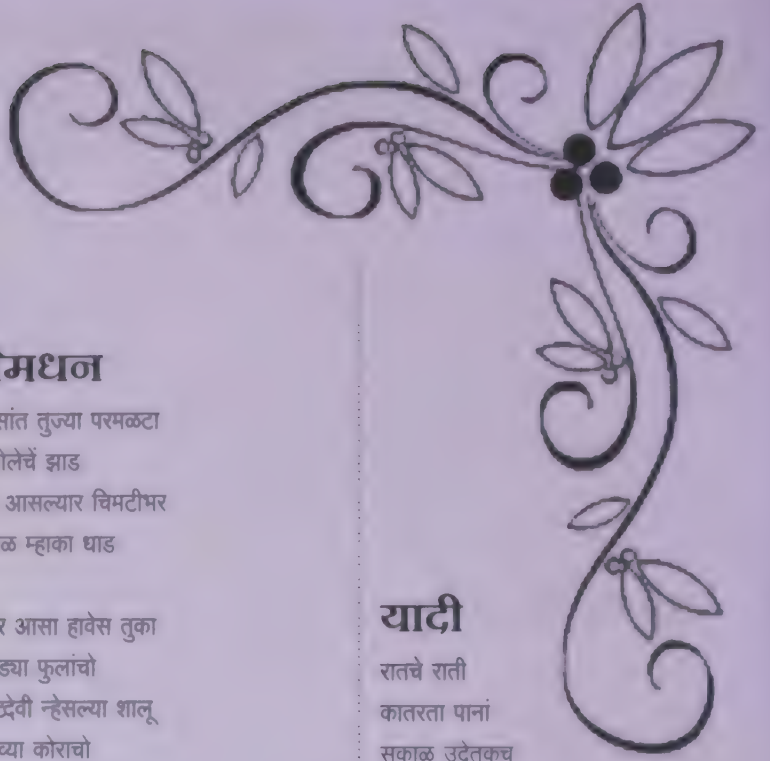 मधन
सांत तुज्या परमळटा
लेचें झाड
आसल्यार चिमटीभर
ळ म्हाका धाड
आसा हावेस तुका
ड्या फुलांचो
न्हेसल्या शालू
व्या कोराचो
यादी
रातचे राती
कातरता पानां
सकाळ उदेतकच